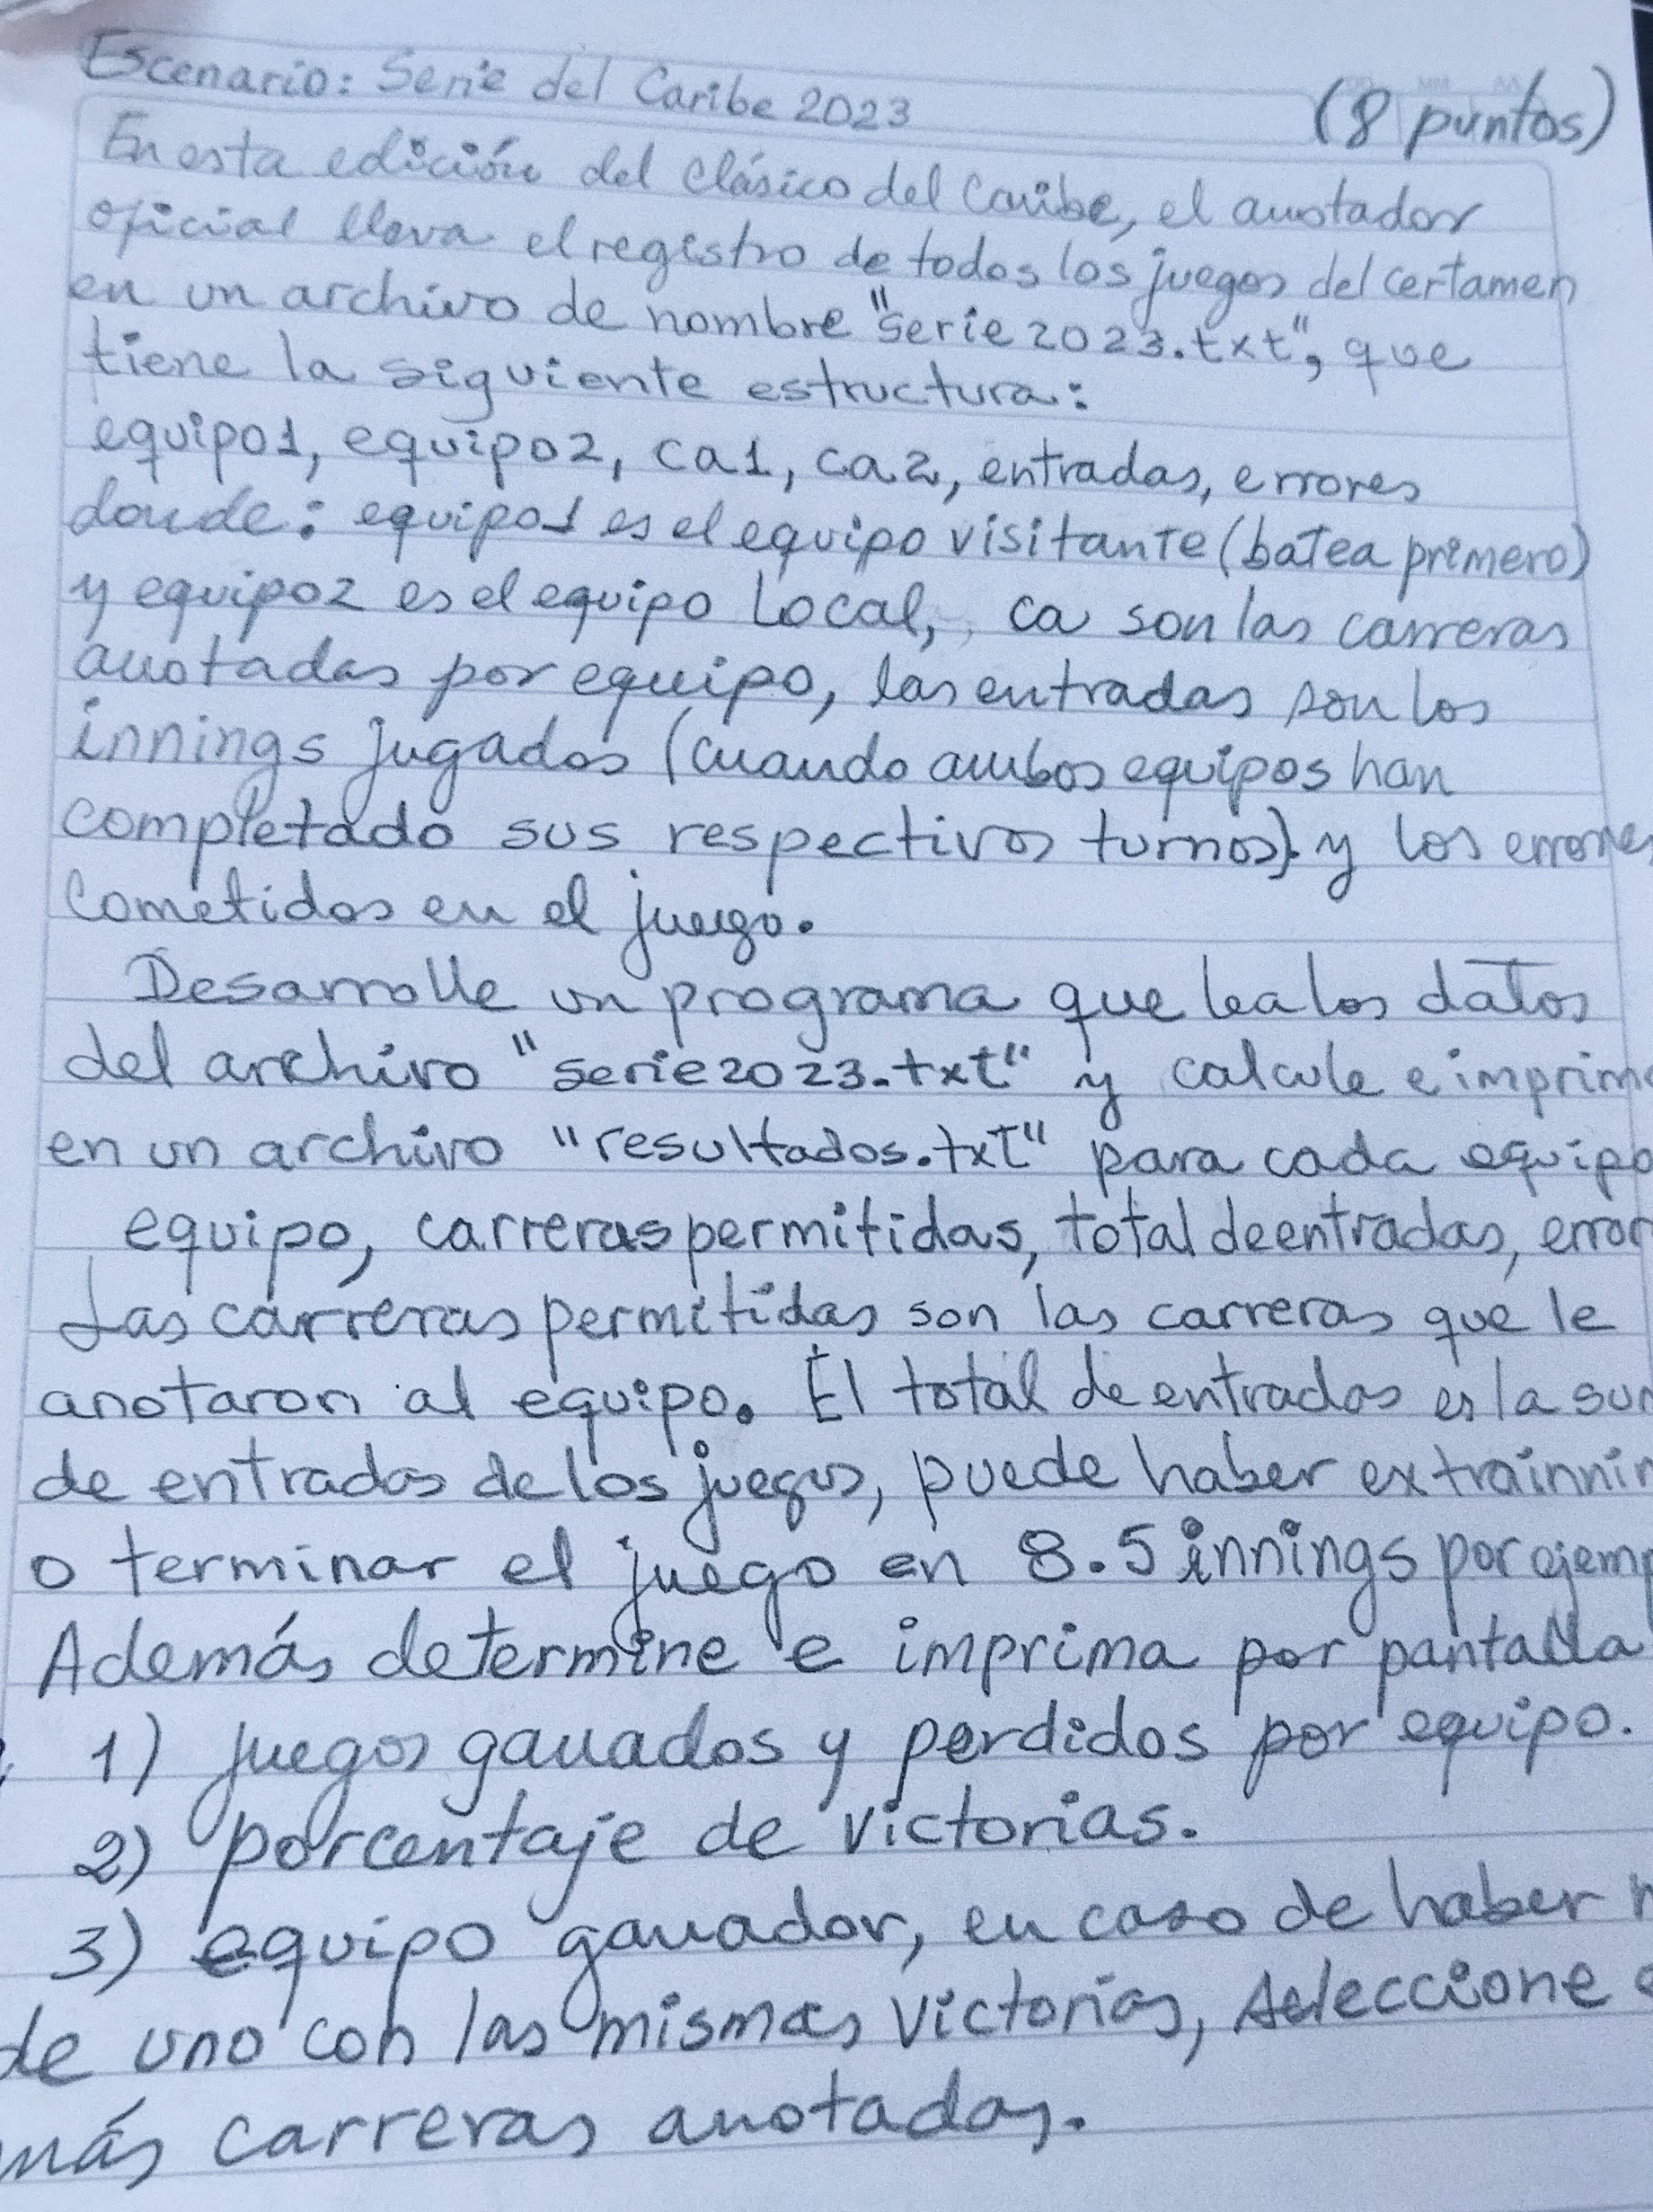 Escenario: Serie del Caribe 2023
(8 puntos)
En esta edición del Clásico del Caribe, el anotador
oficial lleva el registro de todos los juegos del certamen
en un archivo de nombre "serie2023.txt", que
tiene la siguiente estructura:
equipo1, equipo2, ca1, ca2, entradas, errores
donde: equipo1 es el equipo visitante (batea primero)
y equipo2 es el equipo Local, ca son las carreras
anotadas por equipo, las entradas son los
innings jugados (cuando ambos equipos han
completado sus respectivos turnos) y los errores
cometidos en el juego.
Desarrolle un programa que lea los datos
del archivo "serie2023.txt" y calcule e imprim
en un archivo "resultados.txt" para cada equipo
equipo, carreras permitidas, total de entradas, error
Las carreras permitidas son las carreras que le
anotaron al equipo. El total de entradas es la su
de entradas de los juegos, puede haber extrainnin
o terminar el juego en 8.5 innings por ejemp
Además determine e imprima por pantalla
1) juegos ganados y perdidos por equipo.
2) porcentaje de victorias.
3) equipo ganador, en caso de haber
de uno con las mismas victorias, seleccione
más carreras anotadas.